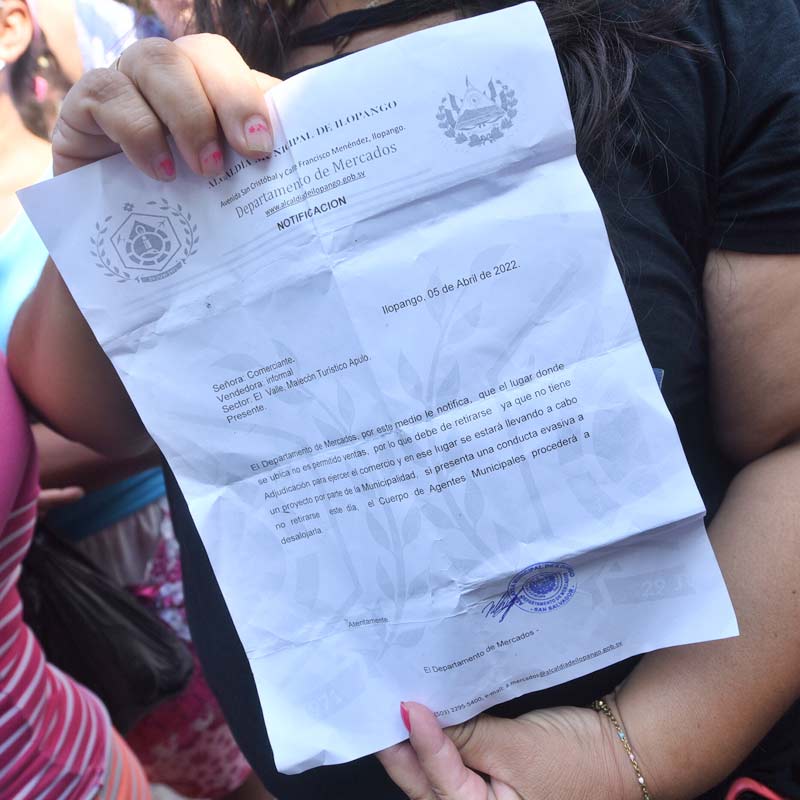 ALCALDÍA MUNICIPAL DE ILOPANGO
Avenida San Cristóbal y Calle Francisco Menéndez, Ilopango.
Departamento de Mercados
www.alcaldiadeilopango.gob.sv
NOTIFICACION
Ilopango, 05 de Abril de 2022.
Señora: Comerciante.
Vendedora: informal
Sector: El Valle. Malecón Turístico Apulo.
Presente.
El Departamento de Mercados, por este medio le notifica, que el lugar donde
se ubica no es permitido ventas, por lo que debe de retirarse ya que no tiene
Adjudicación para ejercer el comercio y en ese lugar se estará llevando a cabo
un proyecto por parte de la Municipalidad, si presenta una conducta evasiva a
no retirarse este día, el Cuerpo de Agentes Municipales procederá a
desalojarla.
Atentamente.
DEPARTAMENTO DE MERCADOS
- SAN SALVADOR -
El Departamento de Mercados -
(503) 2295-5400, e-mail: a.mercados@alcaldiadeilopango.gob.sv